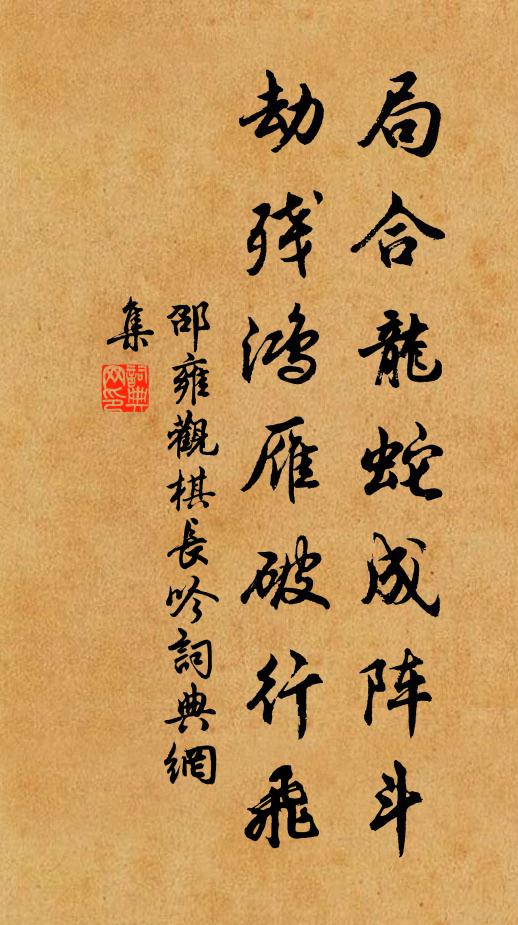 局合龍蛇成阵斗
劫残鴻雁破行飛
邵雍觀棋長吟詞典網
集
詞典
网印